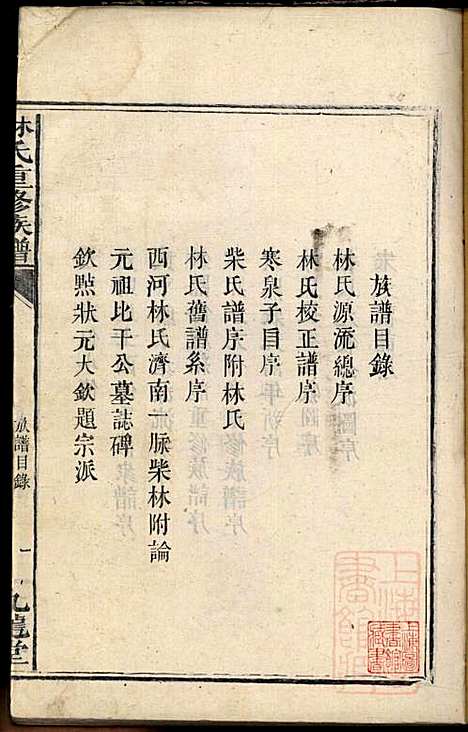 族譜目錄
林氏源流總序
林氏校正譜序
寒泉子目序
柴氏譜序附林氏
林氏舊譜系序
西河林氏濟南一脈柴林附論
元祖比干公墓誌碑
欽點狀元大欽題宗派
林氏重修族譜
族譜目錄
一
九龍堂
上海圖書館藏書